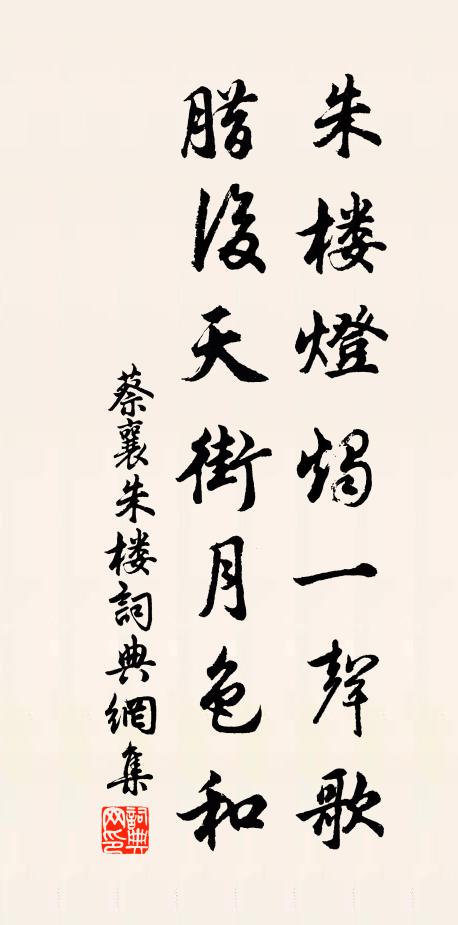 朱楼燈燭一聲歌
腊後天街月色和
蔡襄朱楼詞典網集
詞典网印